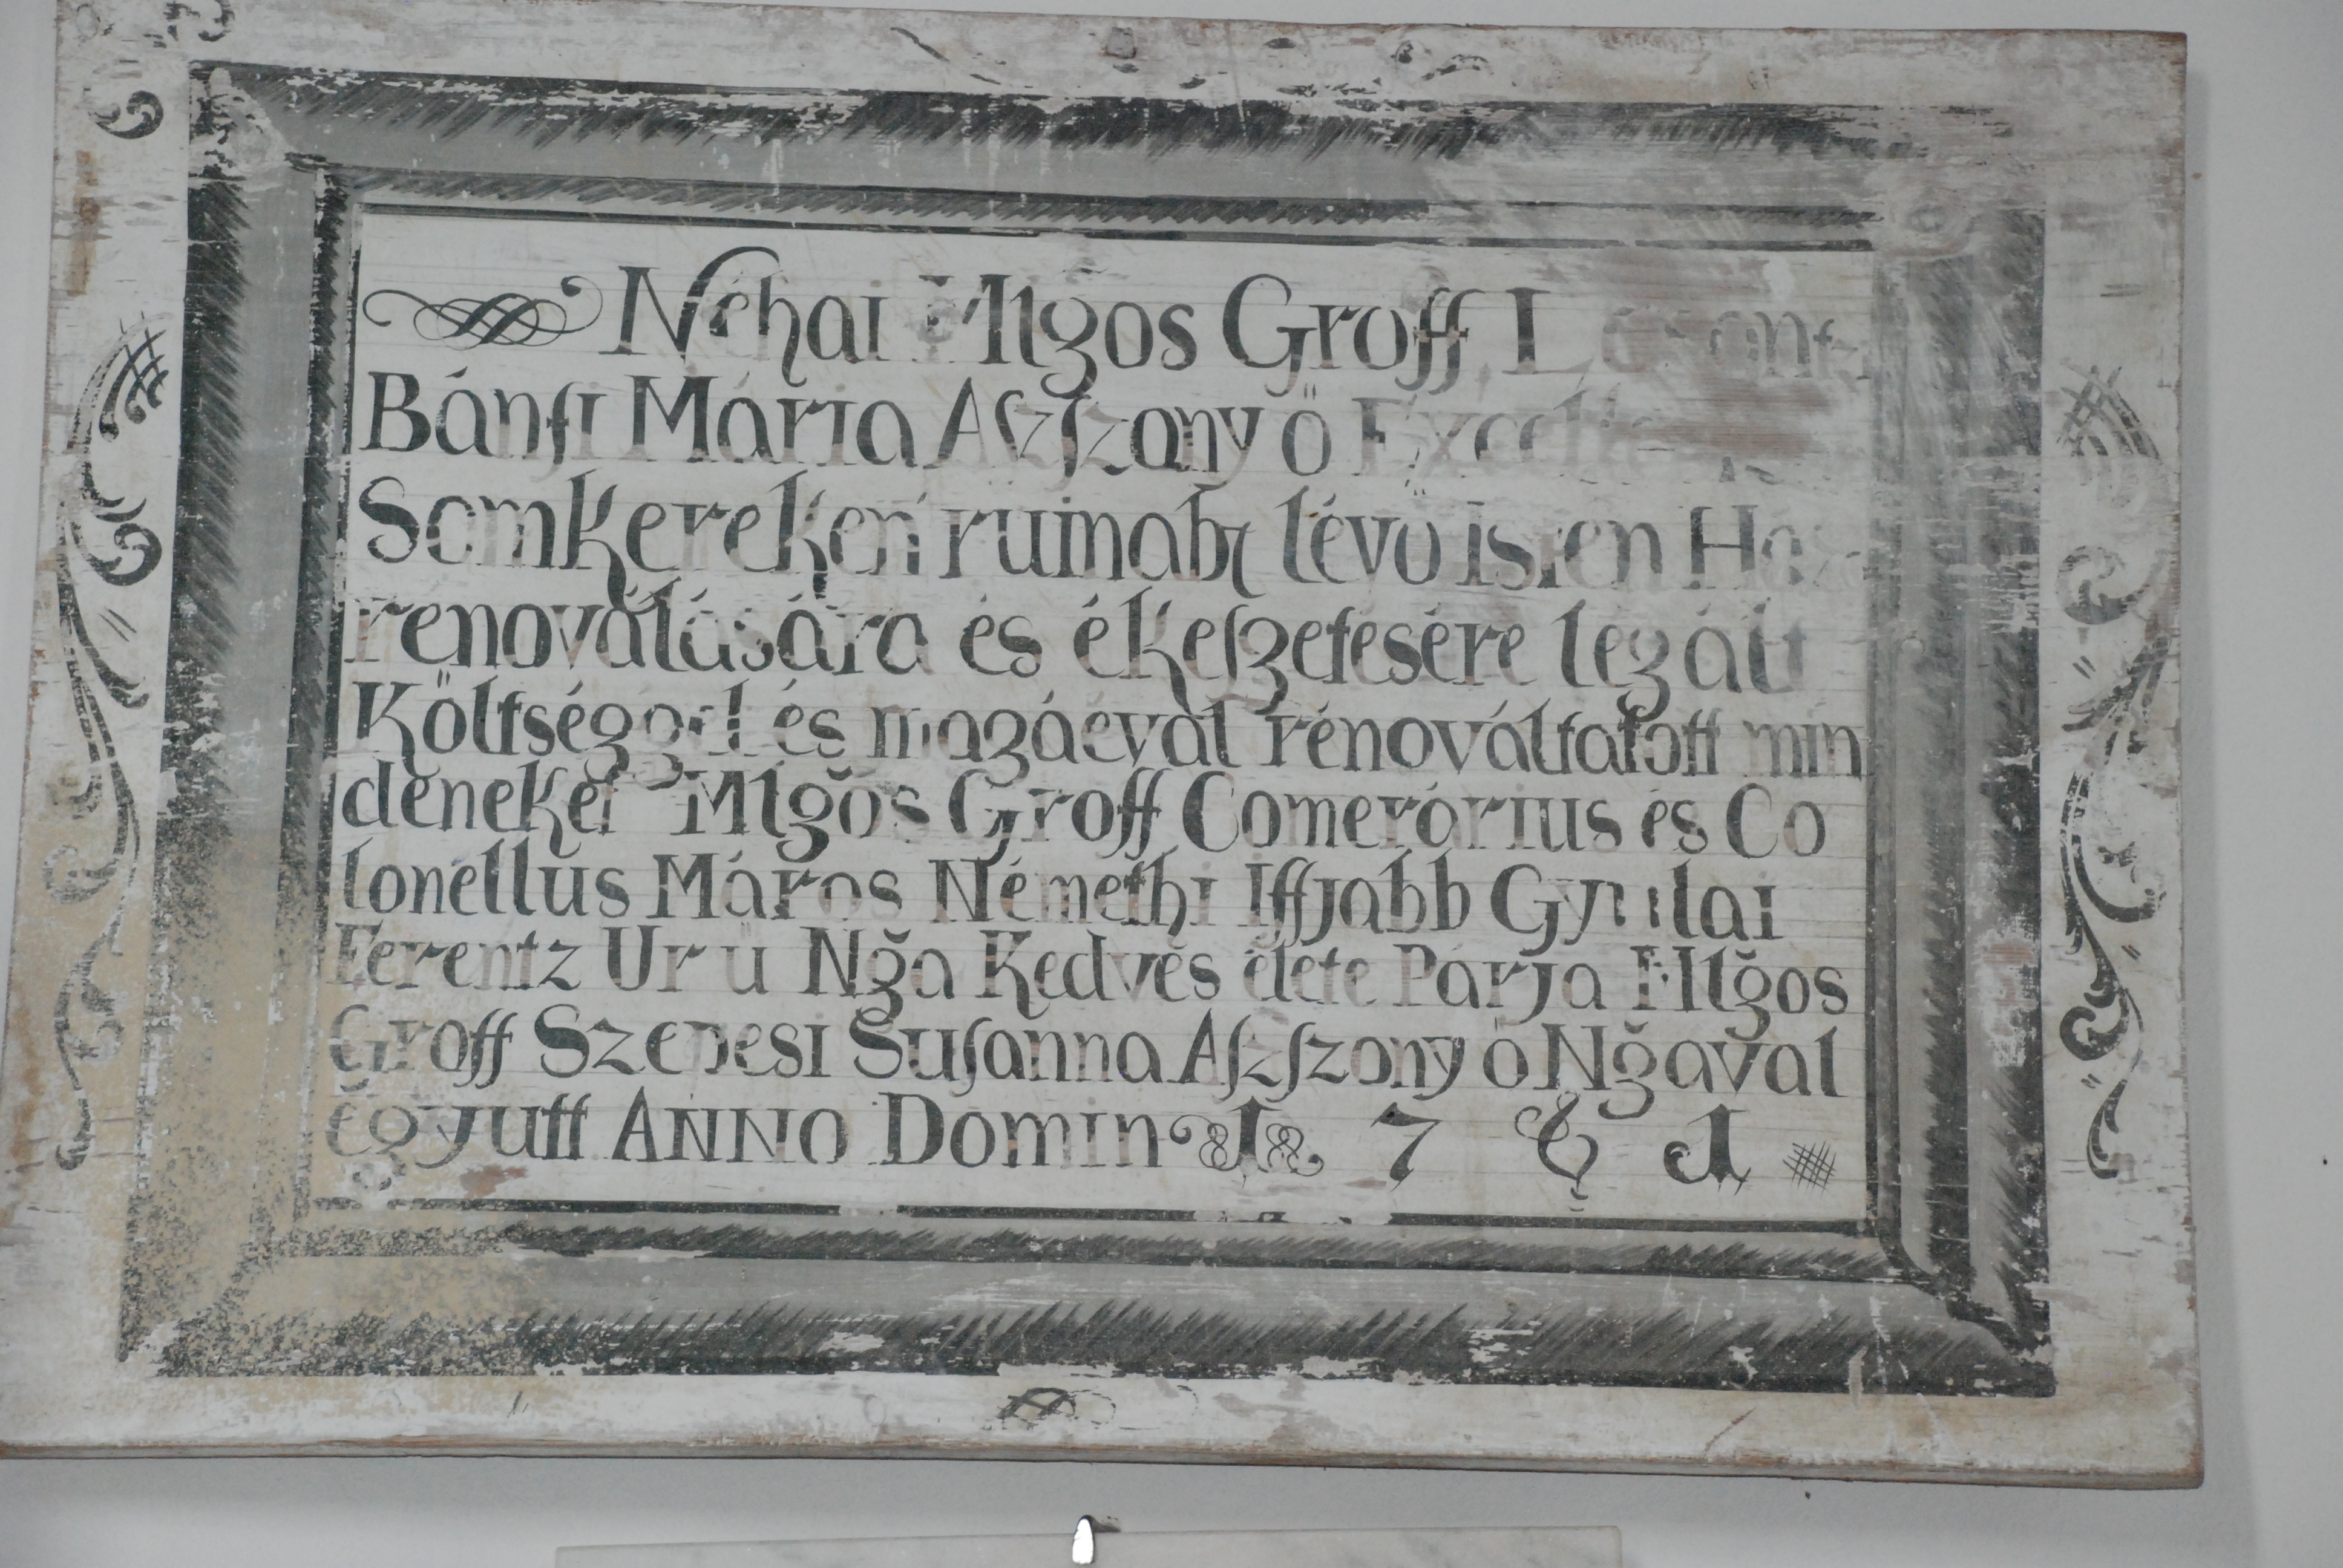 Néhai Mlgos Groff Losontzi
Bánfi Mária Aſzſzony ő
Somkereken ruinabā lévő isten Haza
renoválására és ékeſzetésére legált
Költséggel és magáéval rénováltatott min
deneket Mlgŏs Groff Comerárius és Co
lonéllus Máros Némethi Iffjabb Gyulai
Ferentz Ur ŭ Nğa Kedvés élete Párja Mlğos
Groff Szepesi Suſanna Aſzſzony ő Nğával
ĕgyutt ANNO Domini 7 8 1